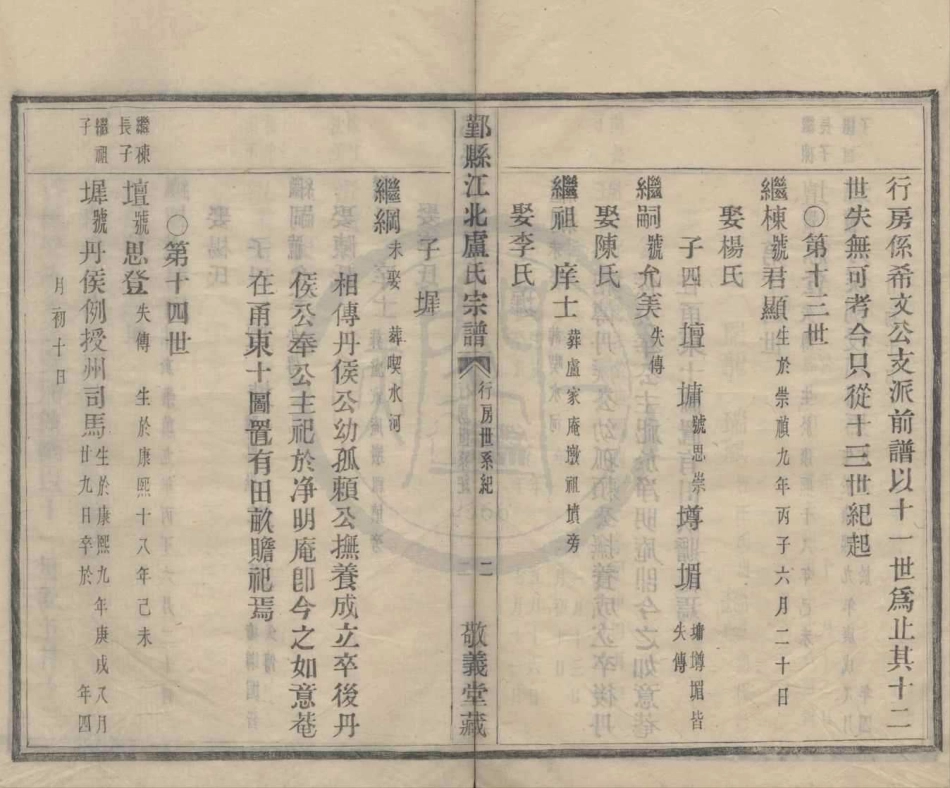 行房係希文公支派前譜以十一世爲止其十二
世失無可考今只從十三世紀起
〇第十三世
繼棟號君顯生於崇禎九年丙子六月二十日
娶楊氏
子四壇墉號思崇墫堳墉墫堳皆失傳
繼嗣號允美失傳
娶陳氏
繼祖庠士葬盧家庵墩祖墳旁
娶李氏
鄞縣江北盧氏宗譜 行房世系紀 二 敬義堂藏
子墀
繼綱未娶葬喫水河
相傳丹侯公幼孤賴公撫養成立卒後丹
侯公奉公主祀於净明庵卽今之如意菴
在甬東十圖置有田畝贍祀焉
〇第十四世
繼棟長子
壇號思登失傳 生於康熙十八年己未
繼祖子
墀號丹侯例授州司馬生於康熙九年庚戌又月廿九日卒於 年四
月初十日